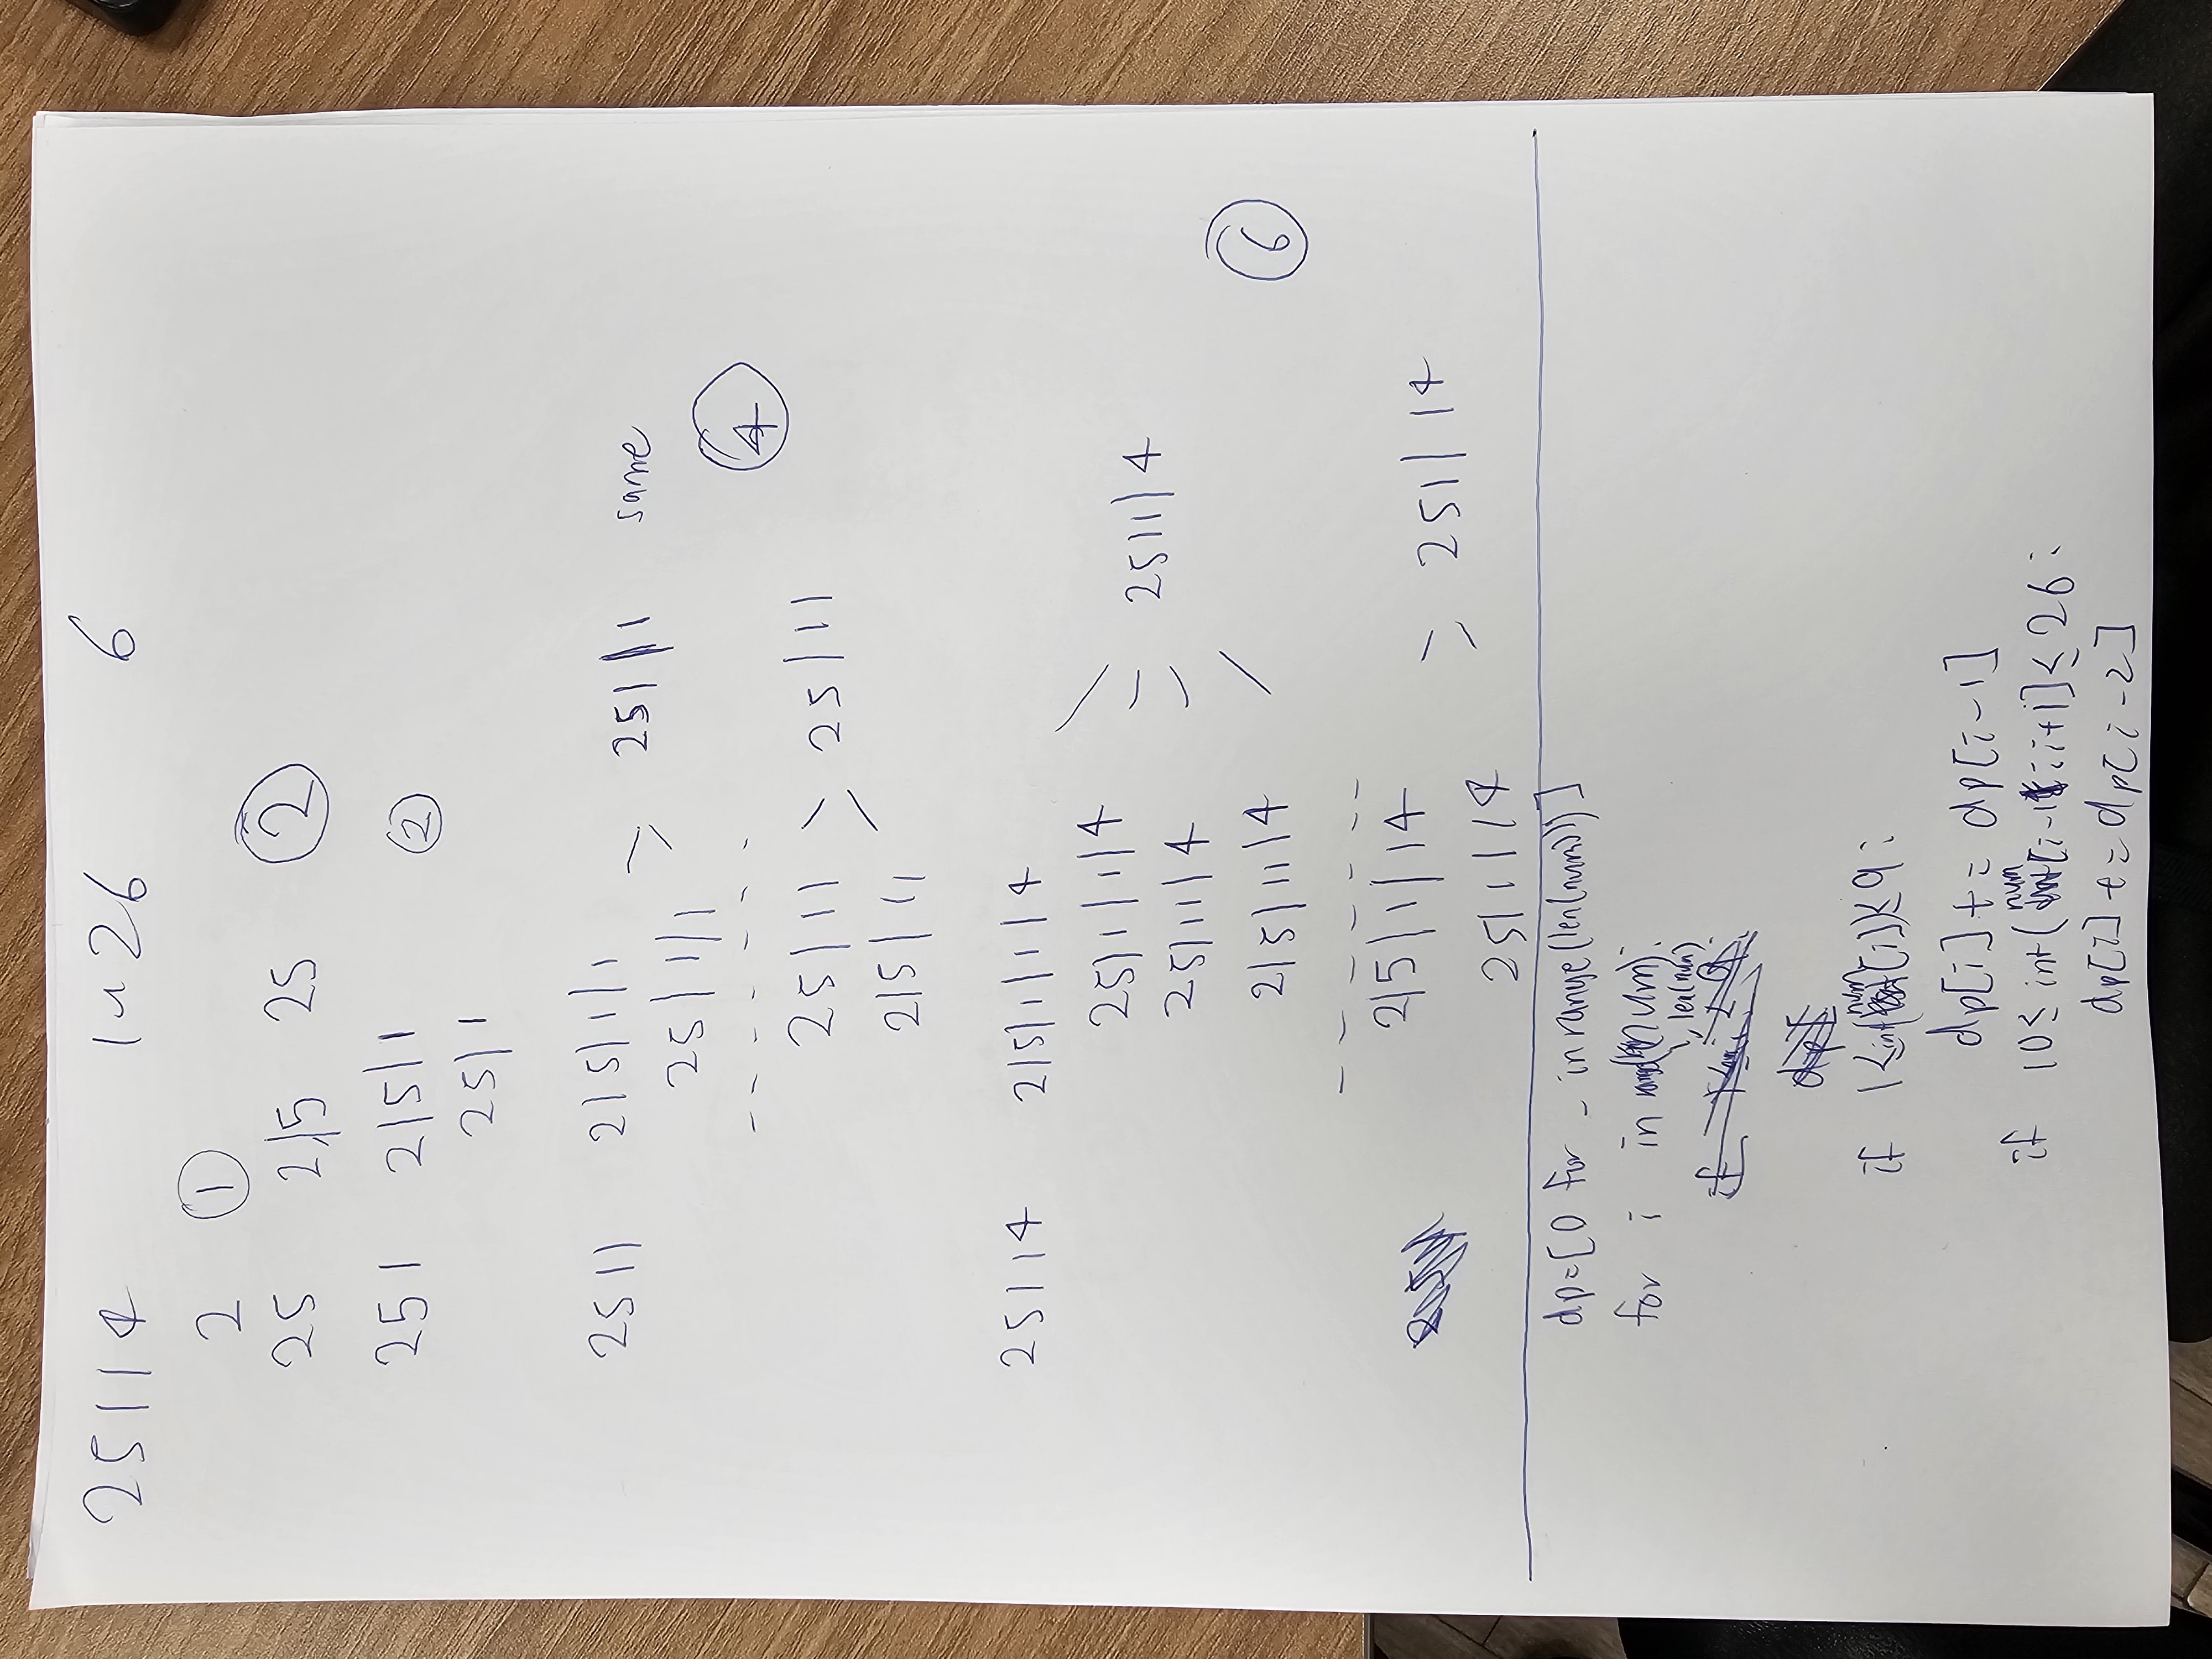 25114 1~26 6
2 ①
25 2|5 25 ②
251 2|5|1 ②
25|1
2511 2|5|1|1 25|1|1 same
25|1|1
④
25|11 25|11
2|5|11
25114 2|5|1|1|4
25|1|1|4 25|1|1|4
25|11|4
2|5|11|4 ⑥
2|5|1|14 25|1|14
25|1|14
dp=[0 for _ in range(len(num))]
for i in (num):
, len(num)
if 1≤int(num[i])≤9:
dp[i] += dp[i-1]
if 10≤int(num[i-1:i+1]≤26:
dp[i] += dp[i-2]